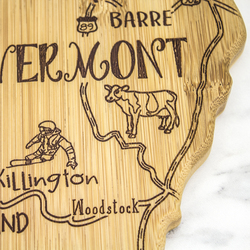 89
BARRE
VERMONT
Killington
Woodstock
ND